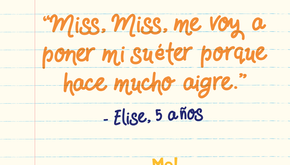 “Miss, Miss, me voy a
poner mi suéter porque
hace mucho aigre.”
- Elise, 5 años